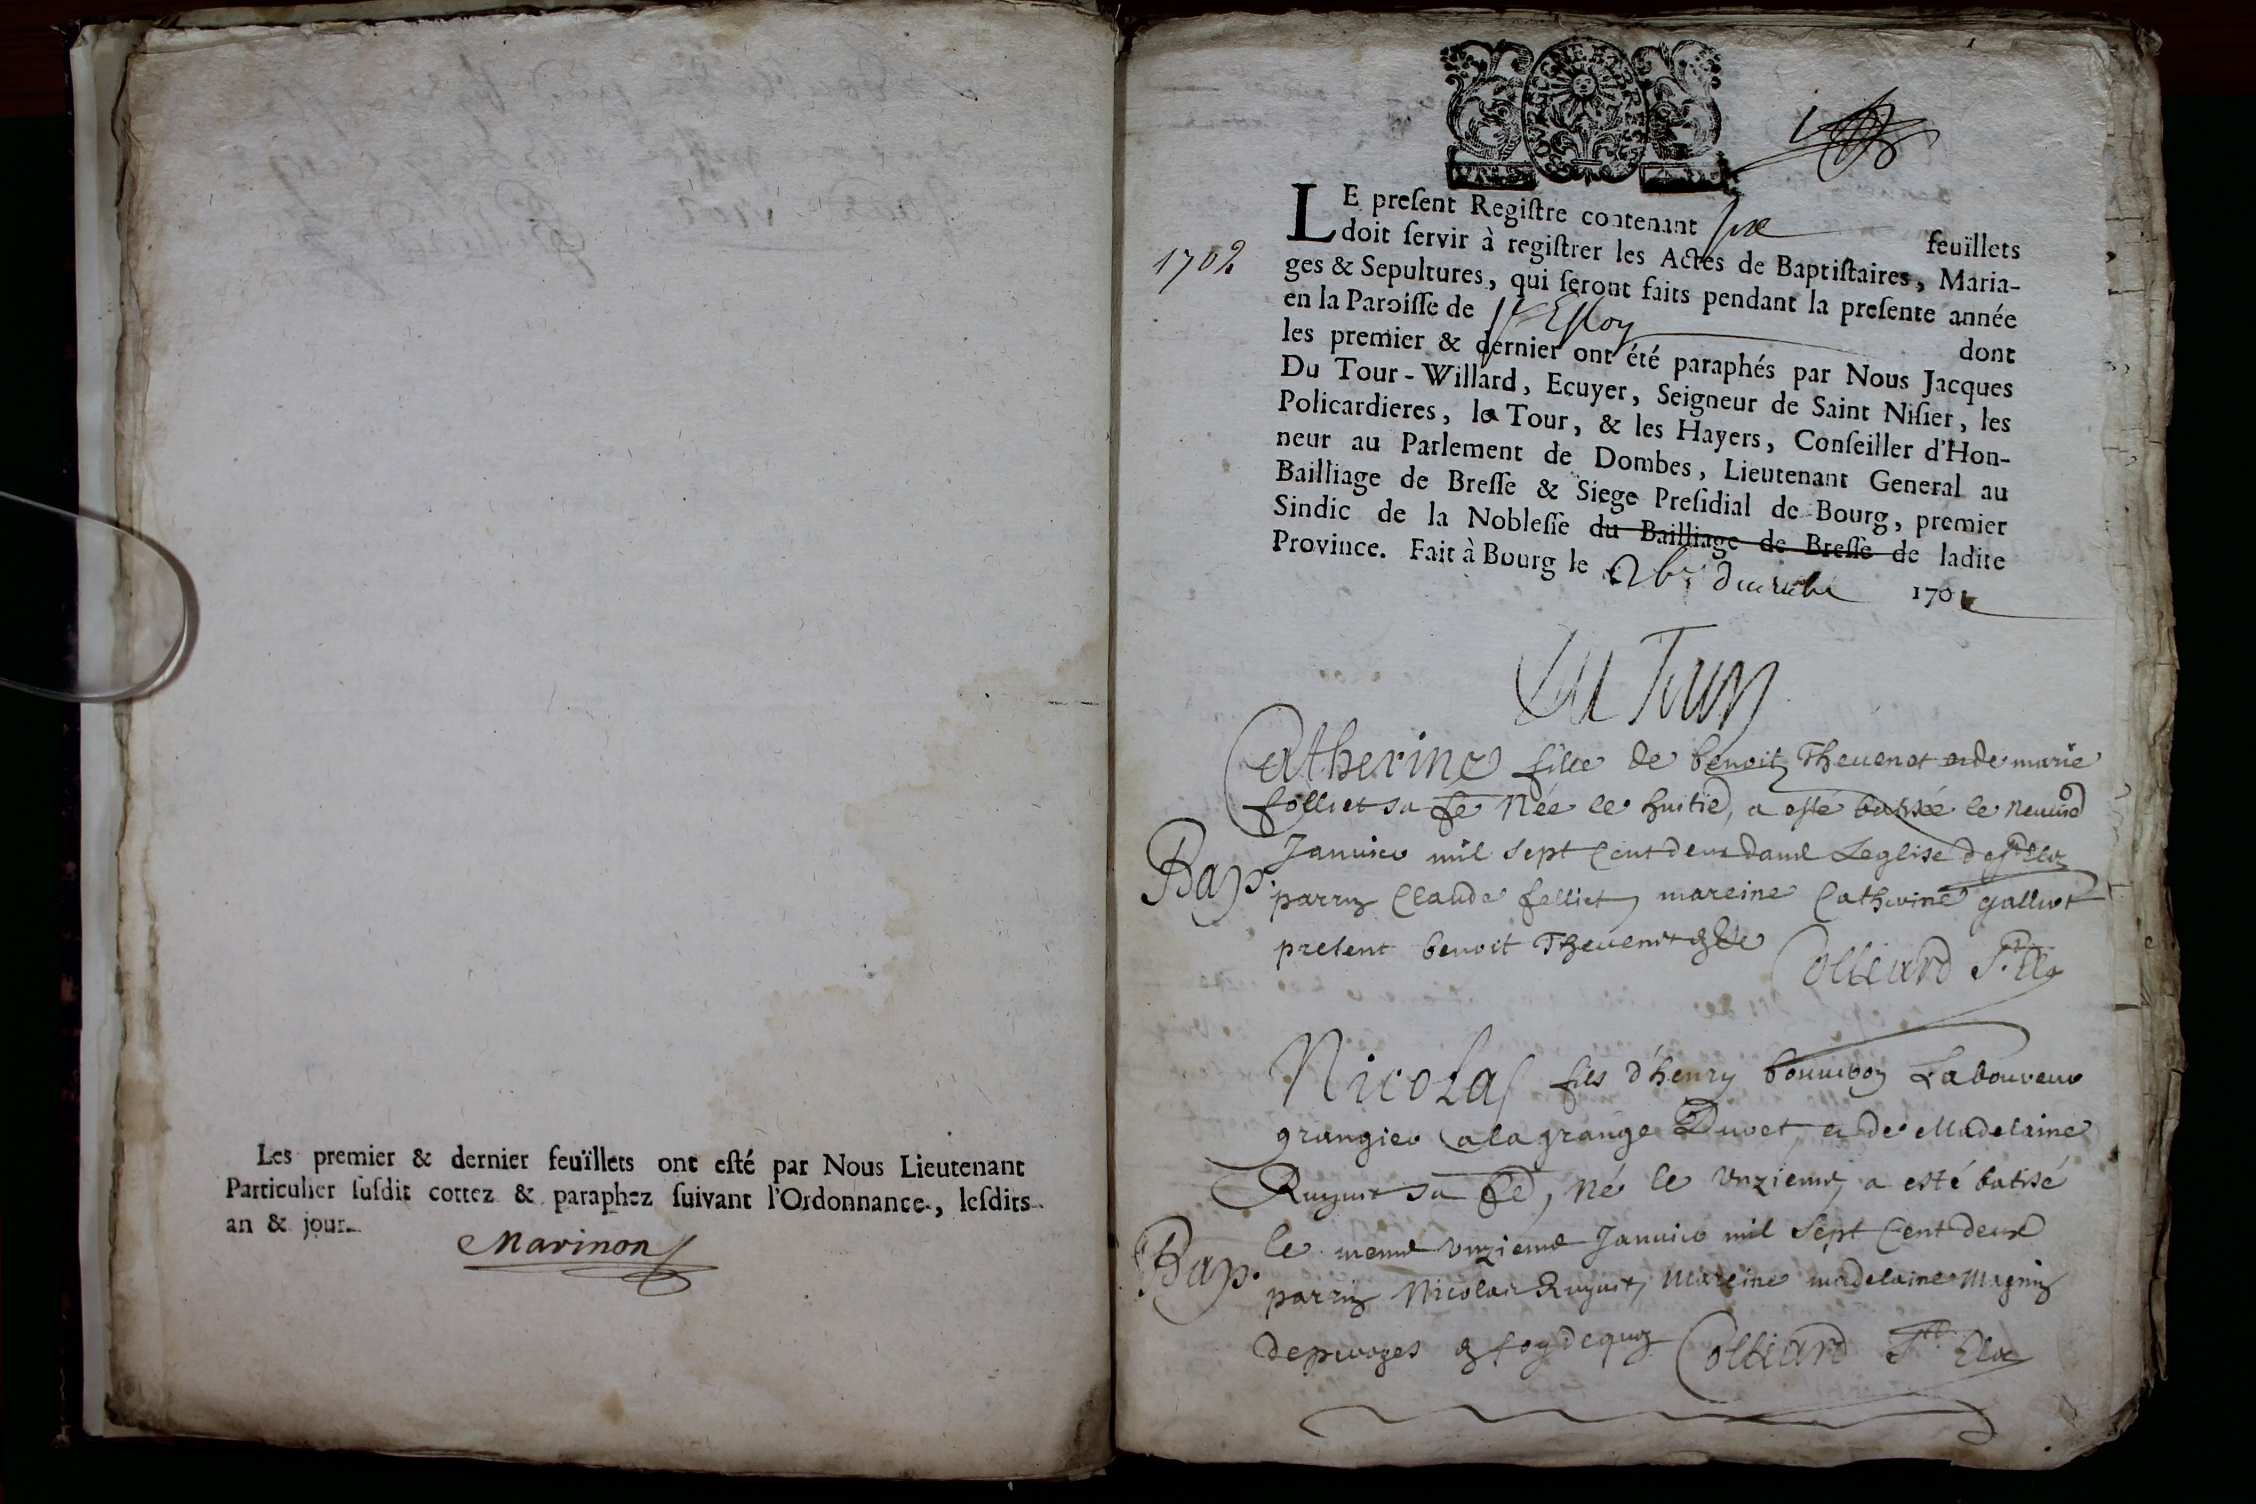 Les premier & dernier feuïllets ont esté par Nous Lieutenant
Particulier susdit cottez & paraphez suivant l'Ordonnance, lesdits
an & jour.
Marinon
1702
LE present Registre contenant feuïllets
doit servir à registrer les Actes de Baptistaires, Maria-
ges & Sepultures, qui seront faits pendant la presente année
en la Paroisse de St Elloy dont
les premier & dernier ont été paraphés par Nous Jacques
Du Tour-Willard, Ecuyer, Seigneur de Saint Nisier, les
Policardieres, la Tour, & les Hayers, Conseiller d'Hon-
neur au Parlement de Dombes, Lieutenant General au
Bailliage de Bresse & Siege Presidial de Bourg, premier
Sindic de la Noblesse du Bailliage de Bresse de ladite
Province. Fait à Bourg le 170
Du Tour
Catherine fille de benoit Thevenet et de marie
folliet sa fe Née le huitie, a esté batisée le neuvie
Bap. Janvier mil sept cent deux dans Leglise de St Eloy
parrin Claude folliet mareine Catherine
present benoit Thevenet
Colliard St Eloy
Nicolas fils d'henry Laboureur
grangier a la grange et de Madelaine
sa fe, né le unzieme a esté batisé
le meme unzieme Janvier mil sept cent deux
Bap. parrin Nicolas mareine madelaine Magnin
foy de quoy Colliard St Eloy